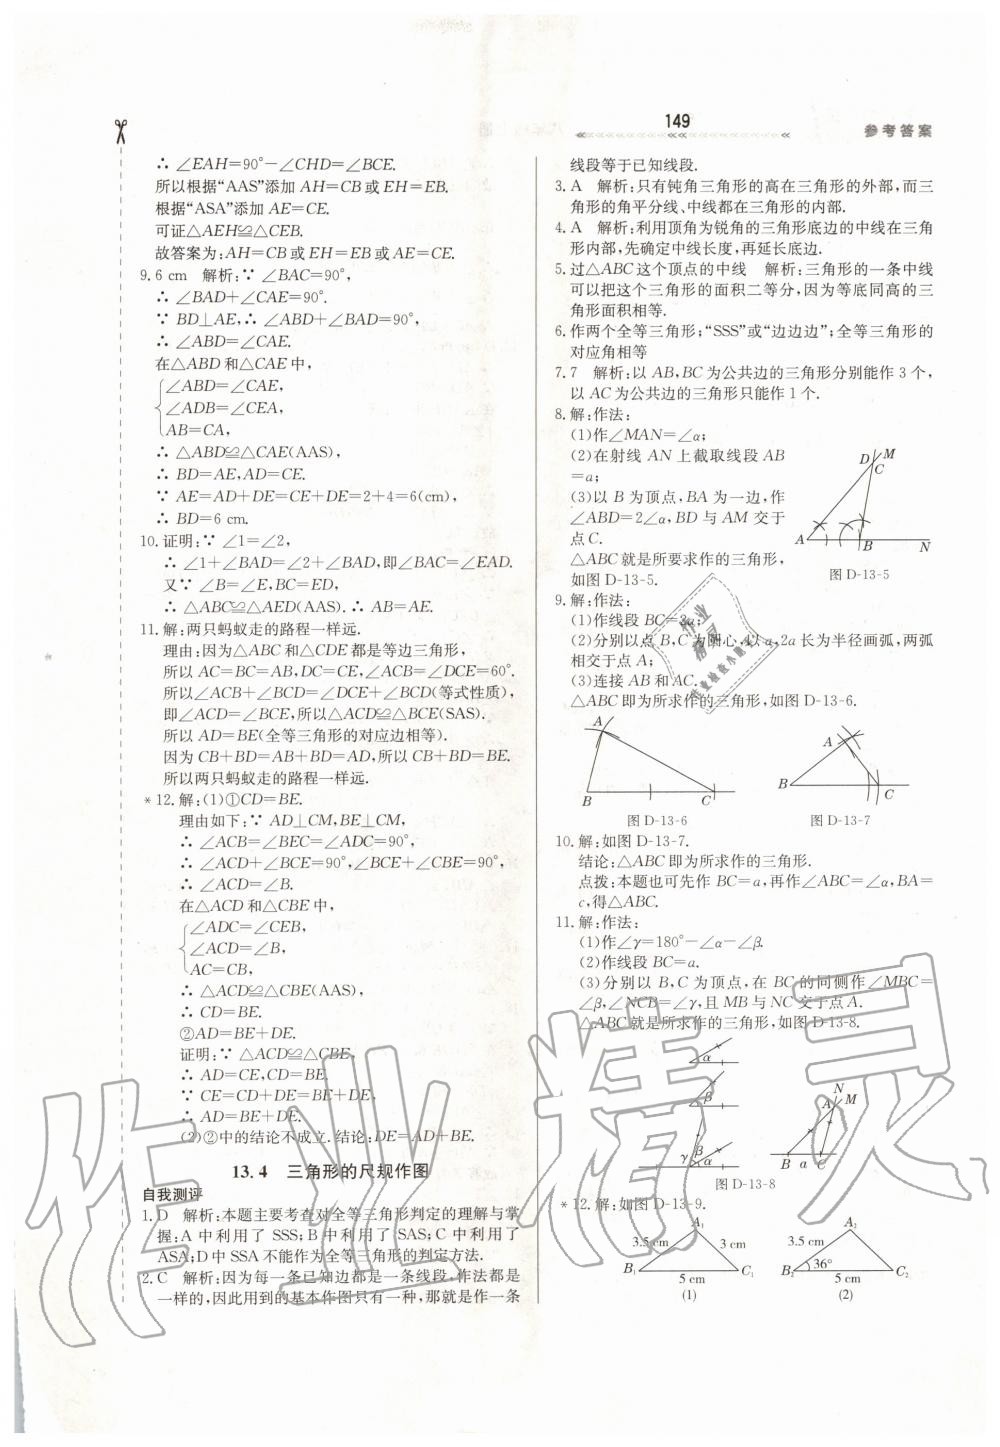 149
参考答案
∴ ∠EAH=90°-∠CHD=∠BCE.
所以根据“AAS”添加 AH=CB 或 EH=EB.
根据“ASA”添加 AE=CE.
可证△AEH≌△CEB.
故答案为:AH=CB 或 EH=EB 或 AE=CE.
9.6 cm 解析:∵ ∠BAC=90°,
∴ ∠BAD+∠CAE=90°.
∵ BD⊥AE,∴ ∠ABD+∠BAD=90°,
∴ ∠ABD=∠CAE.
在△ABD 和△CAE 中,
∠ABD=∠CAE,
∠ADB=∠CEA,
AB=CA,
∴ △ABD≌△CAE(AAS),
∴ BD=AE,AD=CE.
∵ AE=AD+DE=CE+DE=2+4=6(cm),
∴ BD=6 cm.
10.证明:∵ ∠1=∠2,
∴ ∠1+∠BAD=∠2+∠BAD,即∠BAC=∠EAD.
又∵ ∠B=∠E,BC=ED,
∴ △ABC≌△AED(AAS).∴ AB=AE.
11.解:两只蚂蚁走的路程一样远.
理由:因为△ABC 和△CDE 都是等边三角形,
所以 AC=BC=AB,DC=CE,∠ACB=∠DCE=60°.
所以∠ACB+∠BCD=∠DCE+∠BCD(等式性质),
即∠ACD=∠BCE,所以△ACD≌△BCE(SAS).
所以 AD=BE(全等三角形的对应边相等).
因为 CB+BD=AB+BD=AD,所以 CB+BD=BE.
所以两只蚂蚁走的路程一样远.
*12.解:(1)①CD=BE.
理由如下:∵ AD⊥CM,BE⊥CM,
∴ ∠ACB=∠BEC=∠ADC=90°,
∴ ∠ACD+∠BCE=90°,∠BCE+∠CBE=90°,
∴ ∠ACD=∠B.
在△ACD 和△CBE 中,
∠ADC=∠CEB,
∠ACD=∠B,
AC=CB,
∴ △ACD≌△CBE(AAS),
∴ CD=BE.
②AD=BE+DE.
证明:∵ △ACD≌△CBE,
∴ AD=CE,CD=BE.
∵ CE=CD+DE=BE+DE,
∴ AD=BE+DE.
(2)②中的结论不成立.结论:DE=AD+BE.
13.4 三角形的尺规作图
自我测评
1.D 解析:本题主要考查对全等三角形判定的理解与掌
握:A 中利用了 SSS;B 中利用了 SAS;C 中利用了
ASA;D 中 SSA 不能作为全等三角形的判定方法.
2.C 解析:因为每一条已知边都是一条线段,作法都是
一样的,因此用到的基本作图只有一种,那就是作一条
线段等于已知线段.
3.A 解析:只有钝角三角形的高在三角形的外部,而三
角形的角平分线、中线都在三角形的内部.
4.A 解析:利用顶角为锐角的三角形底边的中线在三角
形内部,先确定中线长度,再延长底边.
5.过△ABC 这个顶点的中线 解析:三角形的一条中线
可以把这个三角形的面积二等分,因为等底同高的三
角形面积相等.
6.作两个全等三角形;“SSS”或“边边边”;全等三角形的
对应角相等
7.7 解析:以 AB,BC 为公共边的三角形分别能作 3 个,
以 AC 为公共边的三角形只能作 1 个.
8.解:作法:
(1)作∠MAN=∠α;
(2)在射线 AN 上截取线段 AB
=a;
(3)以 B 为顶点,BA 为一边,作
∠ABD=2∠α,BD 与 AM 交于
点 C.
△ABC 就是所要求作的三角形,
如图 D-13-5.
D M
C
A B N
图 D-13-5
9.解:作法:
(1)作线段 BC=3a;
(2)分别以点 B,C 为圆心,以 a,2a 长为半径画弧,两弧
相交于点 A;
(3)连接 AB 和 AC.
△ABC 即为所求作的三角形,如图 D-13-6.
A
B C
图 D-13-6
A
B C
图 D-13-7
10.解:如图 D-13-7.
结论:△ABC 即为所求作的三角形.
点拨:本题也可先作 BC=a,再作∠ABC=∠α,BA=
c,得△ABC.
11.解:作法:
(1)作∠γ=180°-∠α-∠β.
(2)作线段 BC=a.
(3)分别以 B,C 为顶点,在 BC 的同侧作∠MBC=
∠β,∠NCB=∠γ,且 MB 与 NC 交于点 A.
△ABC 就是所求作的三角形,如图 D-13-8.
α
β
γ β α
N
A M
B a C
图 D-13-8
*12.解:如图 D-13-9.
A₁
3.5 cm 3 cm
B₁ 5 cm C₁
(1)
A₂
3.5 cm
B₂ 36° C₂
5 cm
(2)
作业精灵